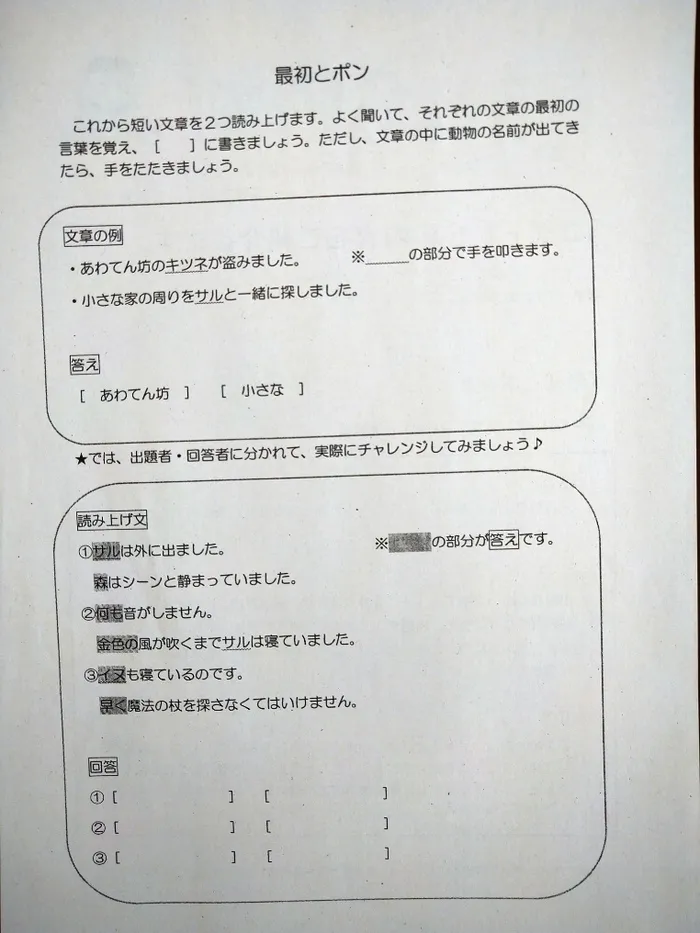 最初とポン
これから短い文章を２つ読み上げます。よく聞いて、それぞれの文章の最初の
言葉を覚え、［　　］に書きましょう。ただし、文章の中に動物の名前が出てき
たら、手をたたきましょう。
文章の例
・あわてん坊のキツネが盗みました。　　※＿＿＿の部分で手を叩きます。
・小さな家の周りをサルと一緒に探しました。
答え
［　あわてん坊　］　［　小さな　］
★では、出題者・回答者に分かれて、実際にチャレンジしてみましょう♪
読み上げ文
①サルは外に出ました。　　※　　の部分が答えです。
森はシーンと静まっていました。
②何も音がしません。
金色の風が吹くまでサルは寝ていました。
③イヌも寝ているのです。
早く魔法の杖を探さなくてはいけません。
回答
①［　　　　　　］　［　　　　　　］
②［　　　　　　］　［　　　　　　］
③［　　　　　　］　［　　　　　　］